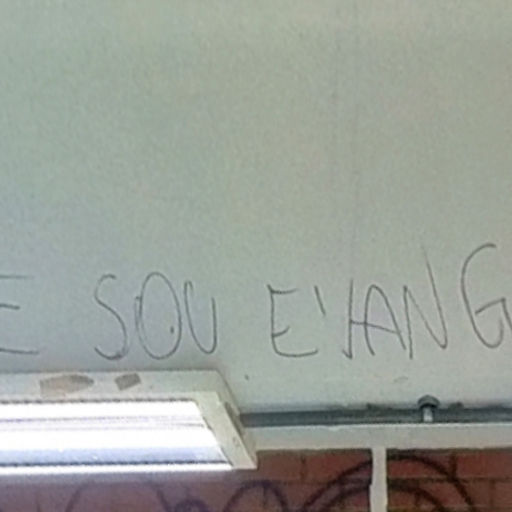 E SOU EVANG